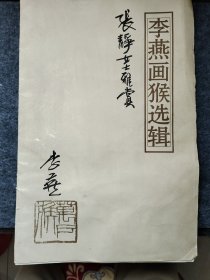 李燕画猴选辑
張靜女士雅賞
李燕